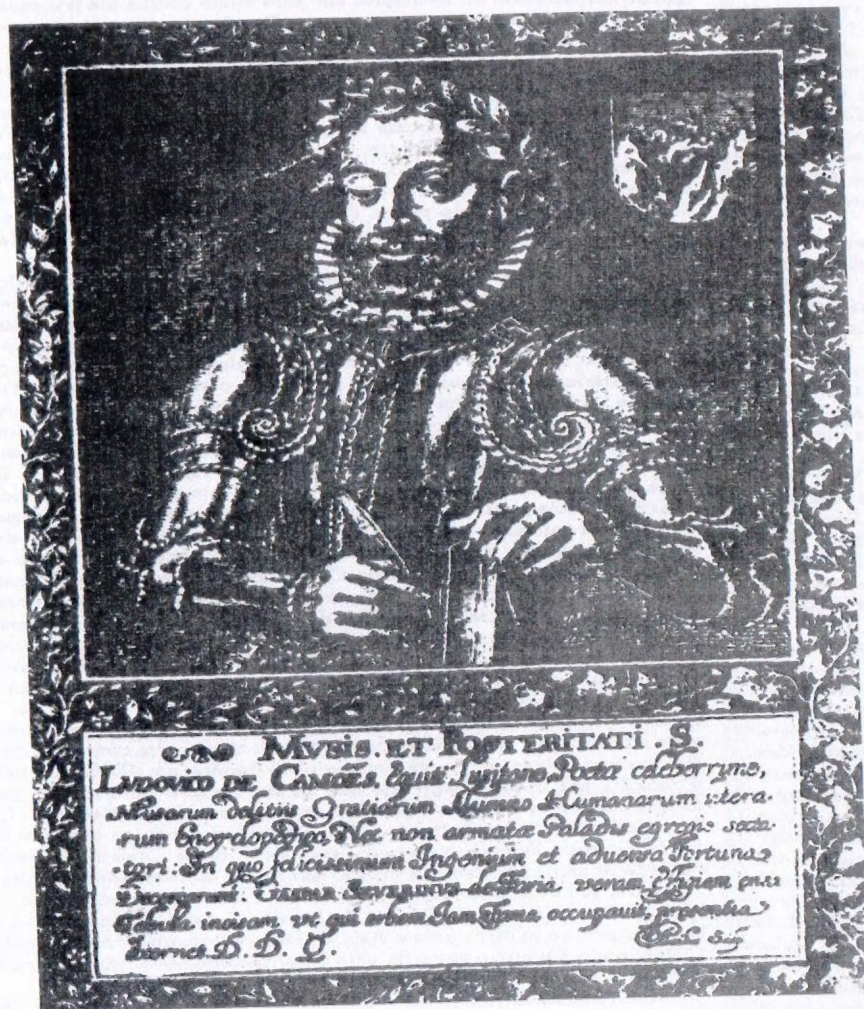 MVSIS. ET POSTERITATI. S.
LVDOVICO DE CAMÕES. Equiti Lusitano, Poetæ celeberrimo,
Musarum delitiis Gratiarum Alumno & Humanarum litera-
-rum Nec non armatæ Paladis egregio secta-
-tori: In quo felicissimum Ingenium et aduersa Fortuna
GASPAR SEVERINVS de Faria veram Effigiem
Tabula incisam vt qui orbem Iam Fama occupauit, præsentia
exornet. D. D. Q.